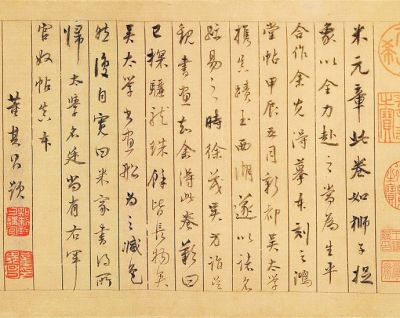 米元章此卷如獅子捉
象以全力赴之當為生平
合作余先得摹本刻之鴻
堂帖甲辰五月新都吳太學
攜真蹟至西湖遂以諸名
跡易之時徐茂吳方詣吳
觀書畫知余得此卷歎曰
已探驪龍珠餘皆長物矣
吳太學書畫船為之減色
然後自寬曰米家書得所
歸太學名廷尚有右軍
官奴帖真本
董其昌題